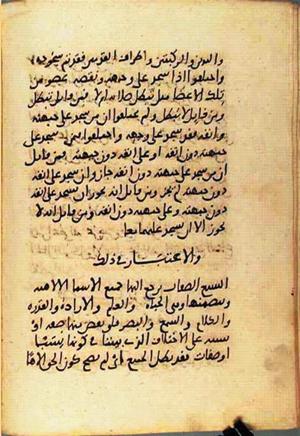 واليدين والركبتين واطراف القدمين فقد تم سجوده
واختلفوا اذا سجد على وجهه ونقصه عضو من
تلك الاعضا هل تبطل صلاته ام لا فمن قايل تبطل
ومن قايل لا تبطل ولم يختلفوا ان من سجد على جبهته
وانفه فقد سجد على وجهه واختلفوا فيمن سجد على
جبهته دون انفه او على انفه دون جبهته فمن قايل
ان سجد على جبهته دون انفه جاز وان سجد على انفه
دون جبهته لم يجز ومن قايل انه يجوز ان سجد على انفه
دون جبهته وعلى جبهته دون انفه ومن قايل انه لا
يجوز الا ان يسجد عليهما معا
والاعتبار في ذلك
السبع الصفات يرجع اليها جميع الاسما الالهية
وتتضمنها وهي الحياة والعلم والارادة والقدرة
والكلام والسمع والبصر فلو نقص منها صفة او
نسبة على الاختلاف الذي بيننا في كونها نسبا
او صفات فقد بطل الجميع اي لم يصح كون الحق الاها